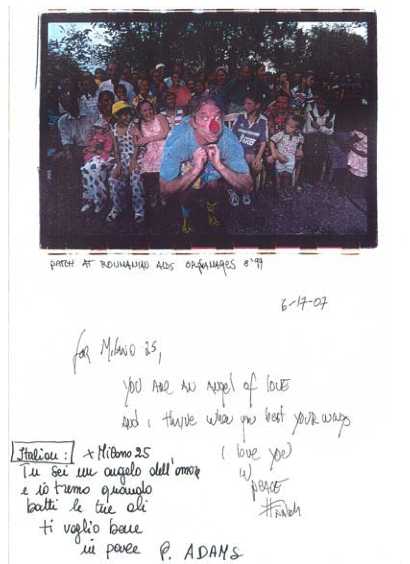 PATCH AT ROUMANIAN AIDS ORFANAGES 8'99
6-17-07
for Milano 25,
you are an angel of love
and i thrive when you beat your wings
i love you
in
peace
Italian: x Milano 25
Tu sei un angelo dell'amore
e io tremo quando
batti le tue ali
ti voglio bene
in pace P. ADAMS